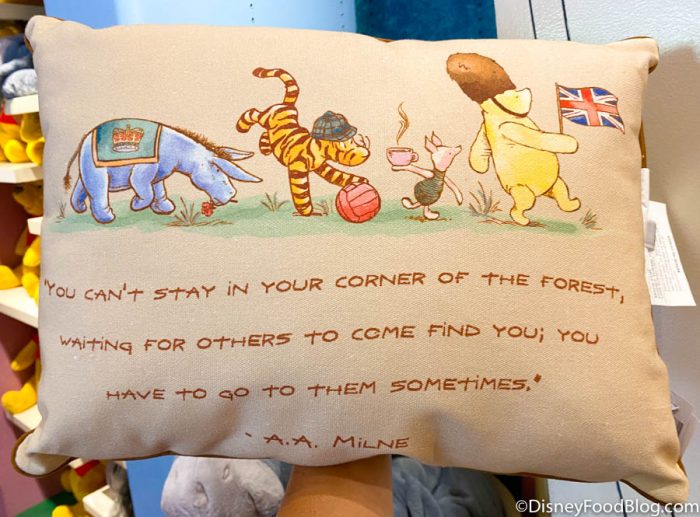 "YOU CAN'T STAY IN YOUR CORNER OF THE FOREST,
WAITING FOR OTHERS TO COME FIND YOU; YOU
HAVE TO GO TO THEM SOMETIMES."
- A.A. MILNE
©DisneyFoodBlog.com